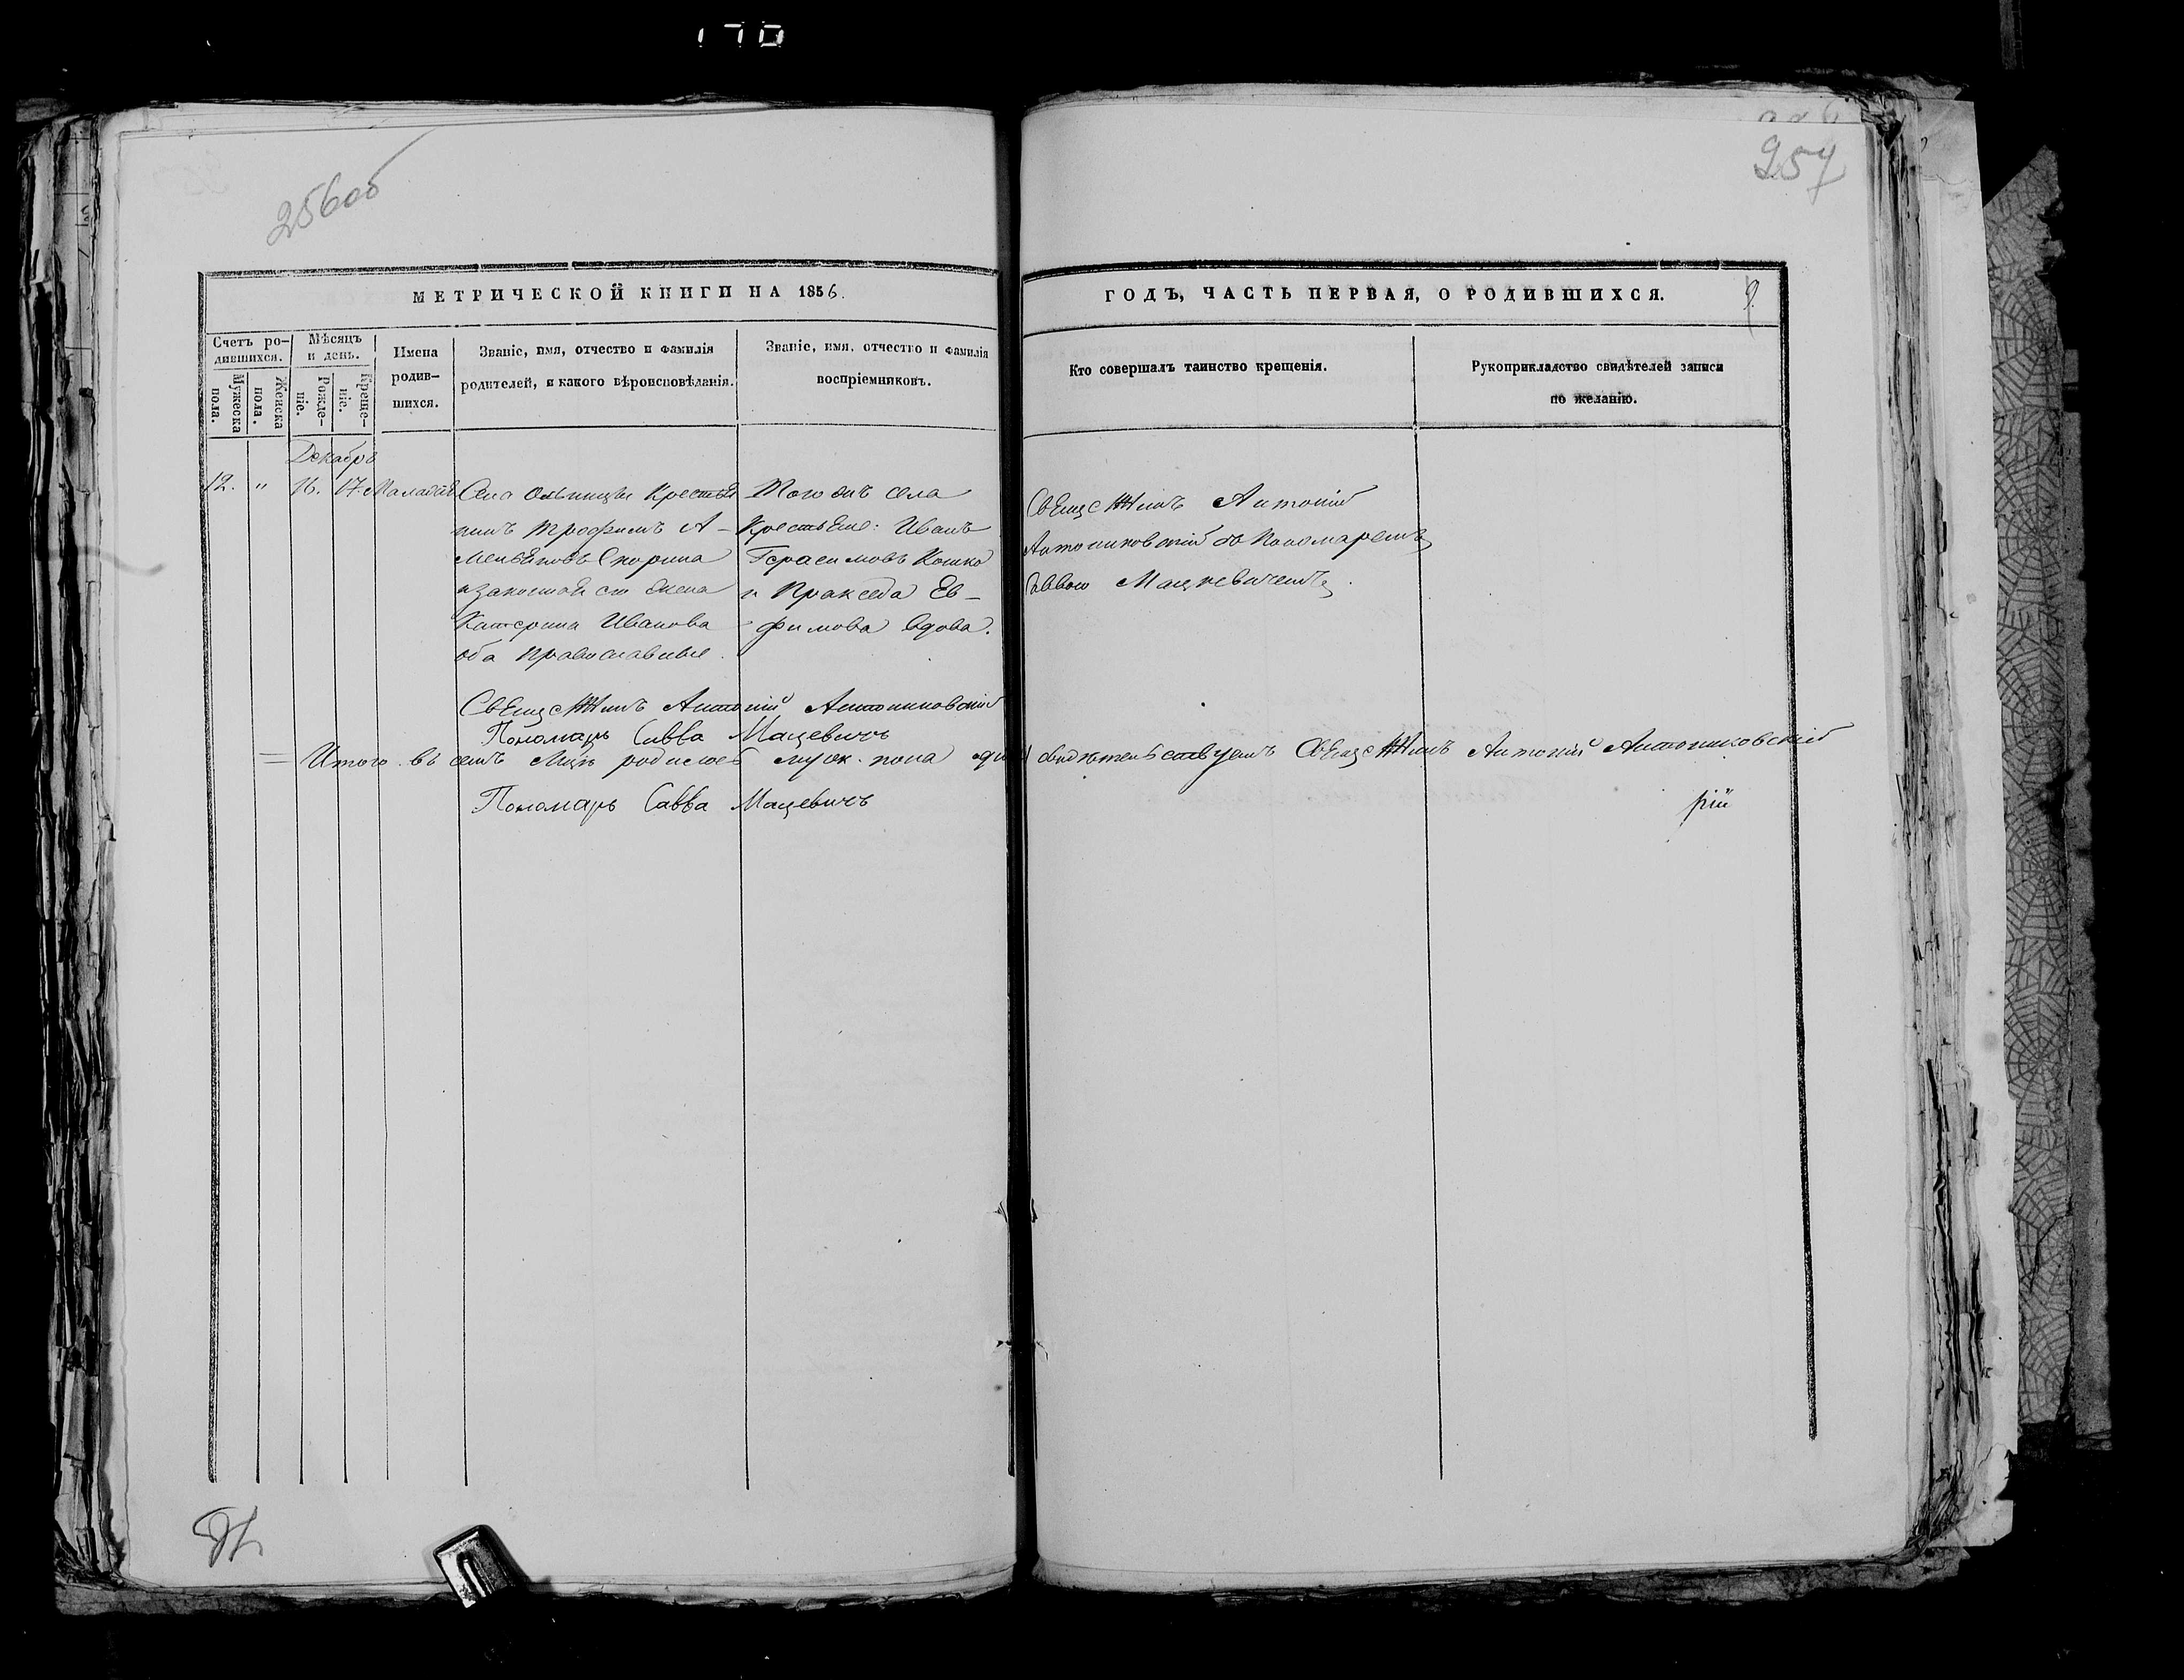 170
256об
257
МЕТРИЧЕСКОЙ КНИГИ НА 1856.
Счетъ ро-
дившихся.
Мужеска
пола.
Женска
пола.
Мѣсяцъ
и день.
Рожде-
ніе.
Креще-
ніе.
Имена
родив-
шихся.
Званіе, имя, отчество и фамилія
родителей, и какого вѣроисповѣданія.
Званіе, имя, отчество и фамилія
воспріемниковъ.
ГОДЪ, ЧАСТЬ ПЕРВАЯ, О РОДИВШИХСЯ.
9
Кто совершалъ таинство крещенія.
Рукоприкладство свидѣтелей записи
по желанію.
Декабрь
12. " 16. 17.
Села Крестья
нинъ Трофимъ А-
Скорина
и законная его жена
Катерина Иванова
оба православные.
Того жъ села
Крестьяне: Иванъ
Герасимовъ Кошко
и Пракседа Ев-
фимова вдова.
Антоній
Антониковскій съ Пономаремъ
Саввою Мацкевичемъ.
Антоній Антониковскій
Пономарь Савва Мацевичъ
Итого въ семъ родилось муж. пола свидѣтельствуемъ Антоній Антониковскій
Пономарь Савва Мацевичъ
рій